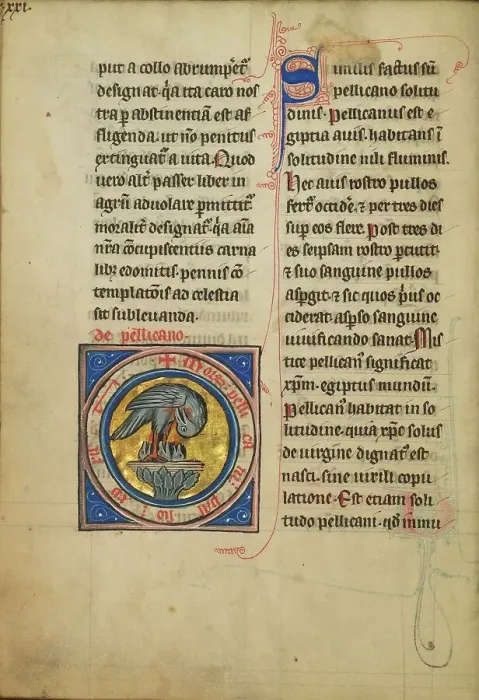 xxi.
put a collo abrumpet̄
designat. q̄a ita caro nos
tra ꝑ abstinentiā est af
fligenda. ut nō penitus
extinguat̄ a uita. Quod
uero alt̄ passer liber in
agrū aduolare ꝑmittit̄
moralit̄ designat̄. q̄a aīa
nr̄a cōcupiscentiis carna
libꝫ edomitis. pennis cō
templatōis ad celestia
sit subleuanda.
de pellicano.
Similis factus sū
pellicano solitu
dinis. Pellicanus est e
giptia auis. habitans ī
solitudine nili fluminis.
Hec auis rostro pullos
fert̄ occide᷑. ⁊ per tres dies
sup eos flere. Post tres di
es seipsam rostro ꝑcutit.
⁊ suo sanguine pullos
aspgit. ⁊ sic quos p̄us oc
ciderat. aspso sanguine
uiuificando sanat. Mis
tice pellicanꝰ significat
xp̄m. egiptus mundū.
Pellicanꝰ habitat in so
litudine. quia xp̄c solus
de uirgine dignatꝰ est
nasci. sine uirili copu
latione. Est etiam soli
tudo pellicani. qd̄ inmu